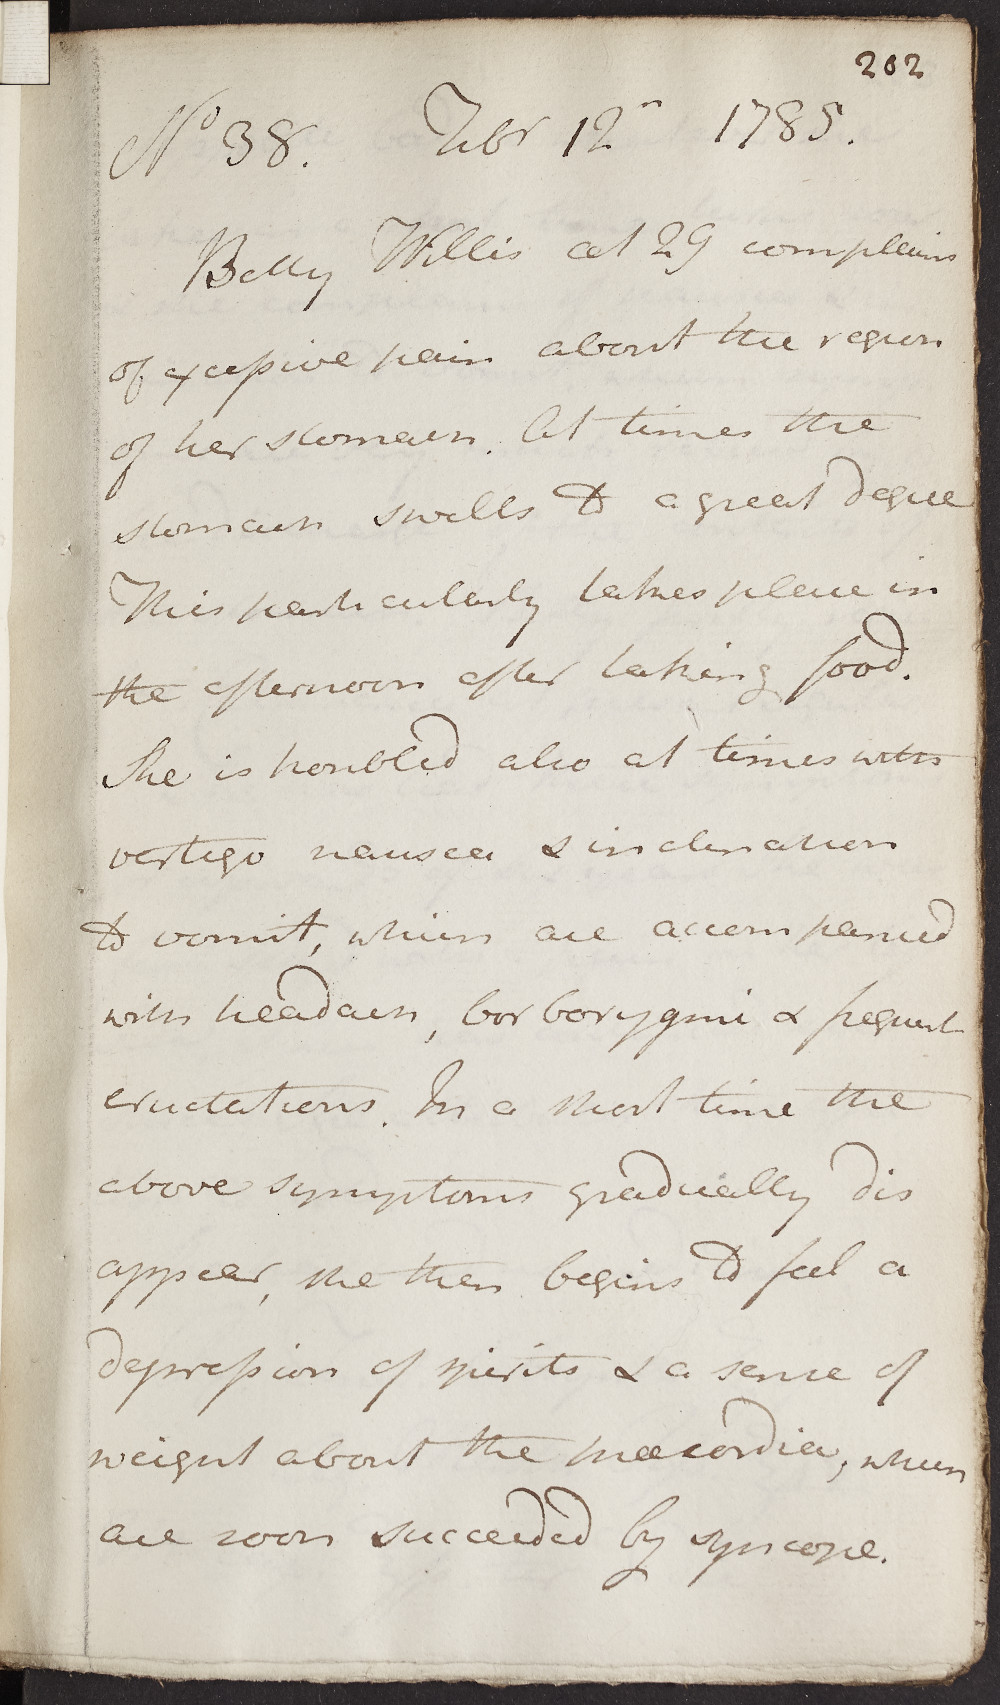 202
No 38. Febr 12th 1785.
Betty Willis aet 29 complains
of excessive pain about the region
of her stomach. At times the
stomach swells to a great degree
This particularly takes place in
the afternoon after taking food.
She is troubled also at times with
vertigo nausea & inclination
to vomit, which are accompanied
with headach, borborygmi & frequent
eructations. In a short time the
above symptoms gradually dis
appear, she then begins to feel a
depression of spirits & a sense of
weight about the praecordia, which
are soon succeeded by syncope.